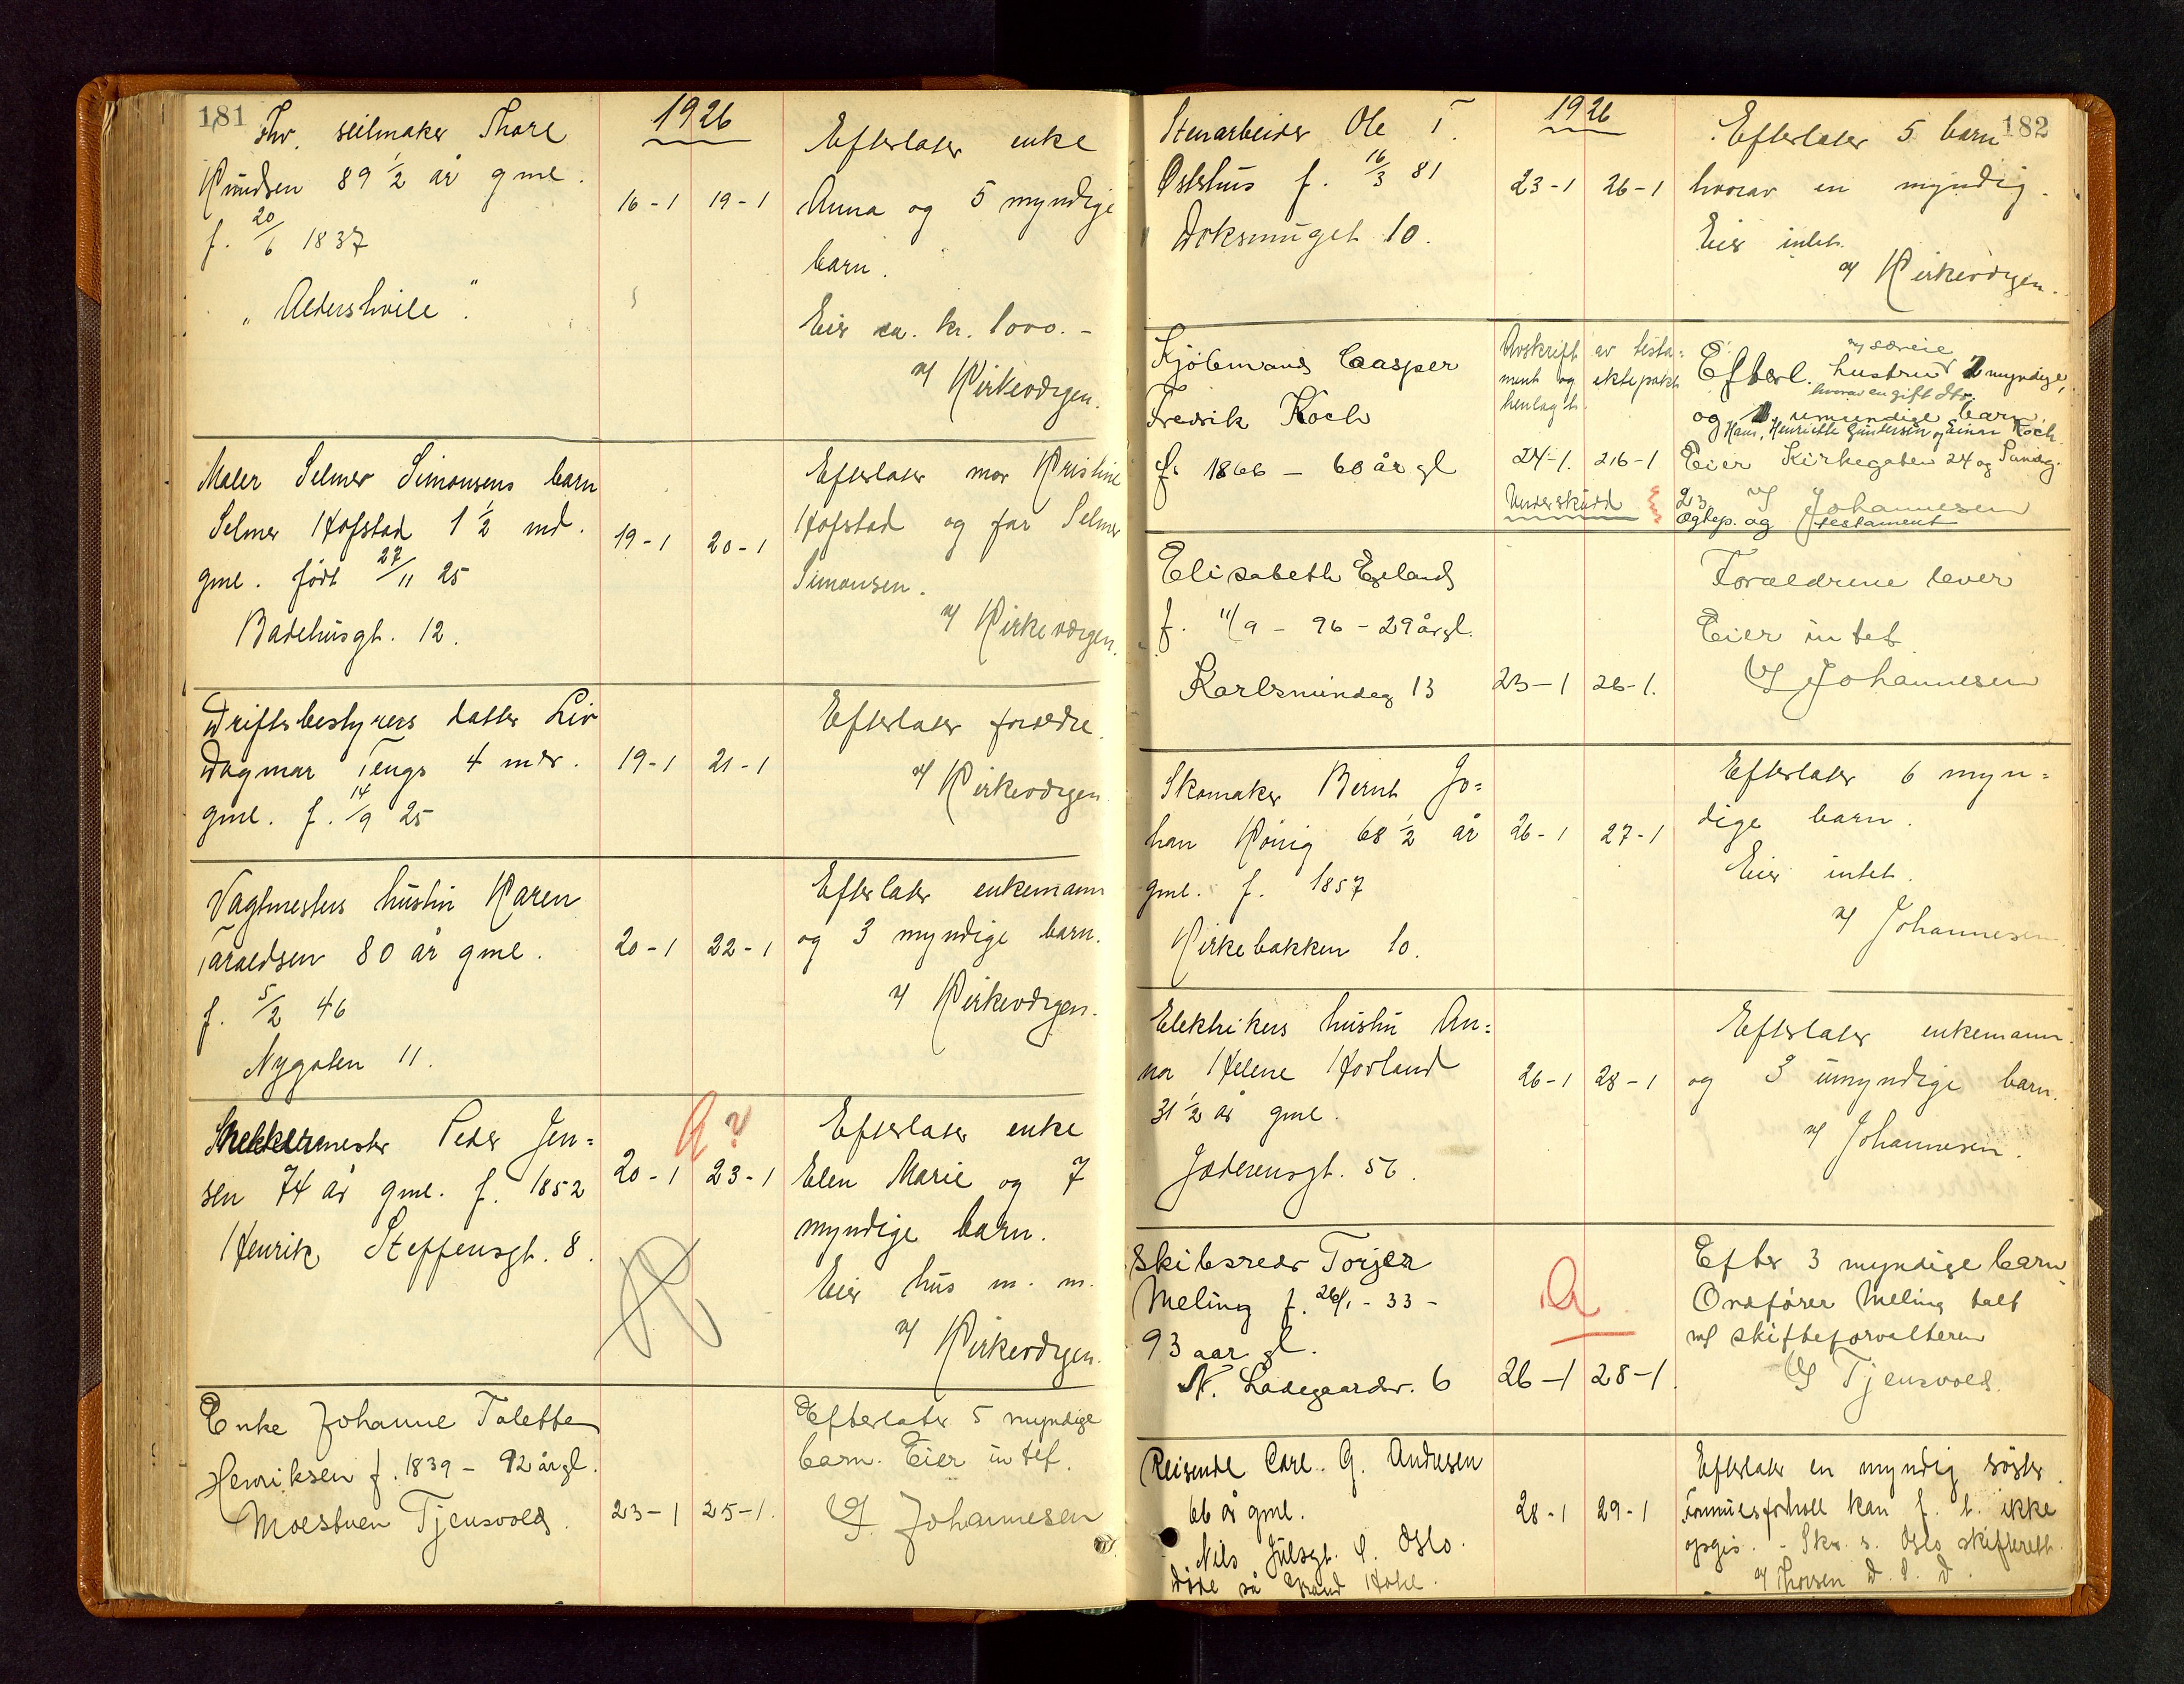 181
Fhv. seilmaker Thore
Knudsen 89 1/2 år gml.
f. 20/6 1837
"Aldershvile".
1926
16-1 19-1
Efterlater enke
Anna og 5 myndige
barn.
Eier ca. kr. 1000.-
Kirkevergen.
Maler Selmer Simonsens barn
Selmer Hofstad 1 1/2 md.
gml. født 27/11 25
Badehusgt. 12.
19-1 20-1
Efterlater mor Kristine
Hofstad og far Selmer
Simonsen.
Kirkevergen.
Driftsbestyrers datter Liv
Dagmar Tengs 4 mdr.
gml. f. 14/9 25
19-1 21-1
Efterlater foreldre.
Kirkevergen
Vagtmesters hustru Karen
Taraldsen 80 år gml.
f. 5/2 46
Nygaten 11.
20-1 22-1
Efterlater enkemann
og 3 myndige barn.
Kirkevergen.
Snekkermester Peder Jen=
sen 74 år gml. f. 1852
Henrik Steffensgt. 8.
A?
20-1 23-1
Efterlater enke
Elen Marie og 7
myndige barn.
Eier hus m. m.
Kirkevergen.
Enke Johanne Talette
Henriksen f. 1839 - 92 år gl.
Moestuen Tjensvold.
23-1 25-1.
Efterlater 5 myndige
barn. Eier intet.
Johannesen
182
Stenarbeider Ole T.
Østhus f. 16/3 81
Doksmuget 10.
1926
23-1 26-1
Efterlater 5 barn
hvorav en myndig.
Eier intet.
Kirkevergen.
Kjøbmand Casper
Fredrik Koch
f. 1866 - 60 år gl
Avskrift av testa=
ment og ektepakt
henlagt.
24-1. 26-1
Underskudd
særeie
Efterl. hustru 2 myndige,
hvorav en gift dtr.
og 1 umyndige barn.
Hans, Henriette Gundersen og Einar Koch.
Eier Kirkegaten 24 og
23
Johannesen
Egtep. og testament
Elisabeth Egeland
f. 11/9 - 96 - 29 år gl.
Karlsmindeg 13
23-1 26-1.
Forældrene lever
Eier intet
Johannesen
Skomaker Bernt Jo=
han König 68 1/2 år
gml. f. 1857
Kirkebakken 10.
26-1 27-1
Efterlater 6 myn=
dige barn.
Eier intet.
Johannesen.
Elektrikers hustru An=
na Helene Hovland
31 1/2 år gml.
Jæderensgt. 56.
26-1 28-1
Efterlater enkemann.
og 3 umyndige barn.
Johannesen.
Skibsreder Torger
Meling f. 26/1 - 33 -
93 aar gl.
N. Ladegaardsv. 6
A
26-1 28-1.
Efter 3 myndige barn.
Ordfører Meling talt
m/ skifteforvalteren
Tjensvold.
Reisende Carl. G. Andresen
66 år gml.
Nils Juelsgt. Oslo.
Døde på Grand Hotel.
28-1 29-1
Efterlater en myndig søster.
Formuesforhold kan f. t. ikke
opgis. - Skr. s. Oslo skifterett.